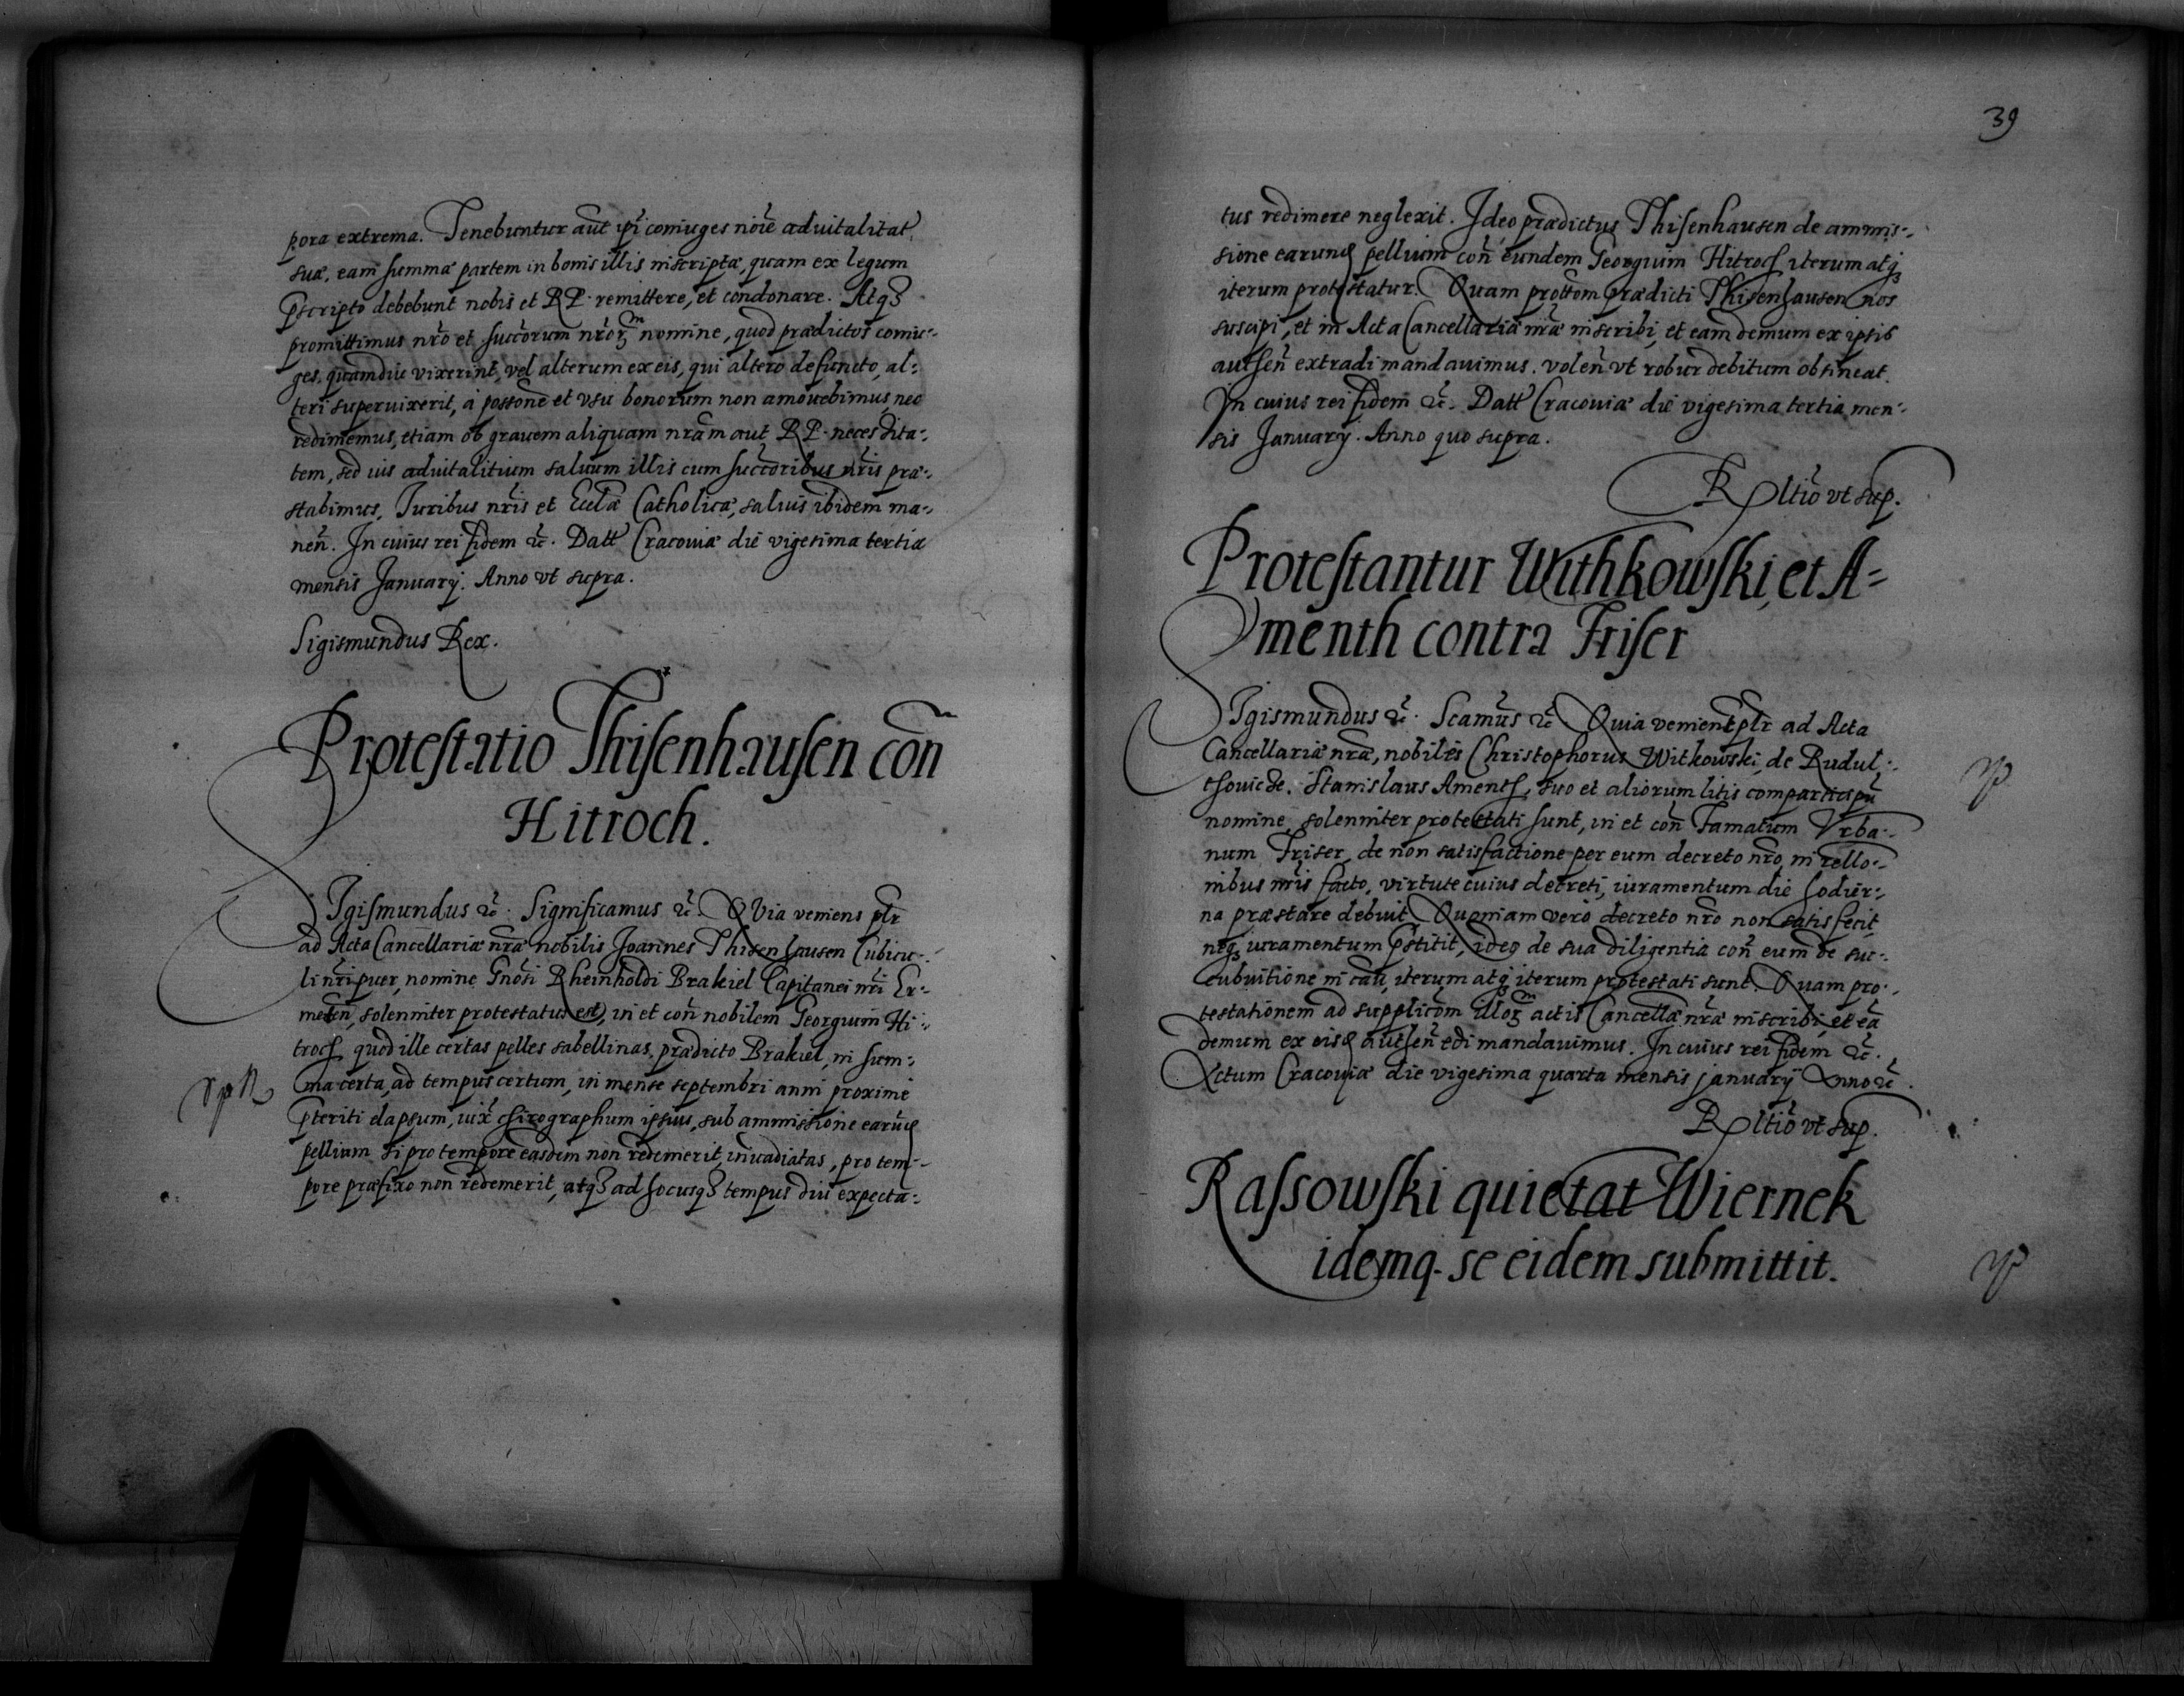 pora extrema. Tenebuntur aut̃ ipĩ coniuges noĩe aduitalitat̃
suæ, eam summæ partem in bonis illis inscriptæ, quam ex legum
p̃scripto debebunt nobis et RP. remittere, et condonare. Atqꝫ
promittimus nrõ et succ̃orum nrõꝝ nomine, quod prædictos coniu-
ges, quamdiu vixerint, vel alterum ex eis, qui altero defuncto, al-
teri superuixerit, a possonẽ et vsu bonorum non amouebimus, nec
redimemus, etiam ob grauem aliquam nrãm aut RP. necessita-
tem, sed ius aduitalitium saluum illis cum succ̃oribus nrĩs præ-
stabimus, Juribus nrĩs et Eccl̃æ Catholicæ, saluis ibidem ma-
neñ. In cuius rei fidem ꝛc̃. Datt Cracouiæ die vigesima tertia
mensis Januarij. Anno vt supra.
Sigismundus Rex.
Protestatio Thisenhausen coñ
Hitroch.
SIgismundus ꝛc̃. Significamus ꝛc̃. QVia veniens pl̃r
ad Acta Cancellariæ nræ̃ nobilis Joannes Thisenhausen Cubicu-
li nrĩ puer, nomine Gnosĩ Rheinholdi Brakiel Capitanei nrĩ Er-
meseñ, solenniter protestatus est, in et coñ nobilem Georgium Hi-
troch, quod ille certas pelles sabellinas, prædicto Brakiel, in sum-
ma certa, ad tempus certum, in mense septembri anni proxime
p̃teriti elapsum, iux̃ chirographum ipsius, sub ammissione earuñd
pellium si pro tempore easdem non redemerit, inuadiatas, pro tem-
pore præfixo non redemerit, atqꝫ ad hocusqꝫ tempus diu expecta-
39
tus redimere neglexit. Ideo prædictus Thisenhausen de ammis-
sione earund pellium coñ eundem Georgium Hitroch iterum atqꝫ
iterum protestatur. Quam prottom̃ prædicti Thisenhausen nos
suscipi, et in Acta Cancellariæ nræ̃ inscribi, et eam demum ex ipsis
autheñ extradi mandauimus. voleñ vt robur debitum obtineat.
In cuius rei fidem ꝛc̃. Datt Cracouiæ die vigesima tertia men-
sis Januarij. Anno quo supra.
Rpltiõ vt sup.
Protestantur Withkowski, et A-
menth contra Friser
SIgismundus ꝛc̃. Scamũs ꝛc̃. Quia venient̃ pl̃r ad Acta
Cancellariæ nrẽ, nobiles Christophorus Witkowski, de Rudul-
thouicze. Stanislaus Amenth, suo et aliorum litis comparticipũ
nomine, solenniter protestati sunt, in et coñ Famatum Vrba-
num Friser, de non satisfactione per eum decreto nrõ, in rello-
nibus nrĩs facto, virtute cuius decreti, iuramentum die hodier-
na præstare debuit. Quoniam verò decreto nrõ non satisfecit,
neqꝫ iuramentum p̃stitit, ideo de sua diligentia coñ eum de suc-
cubuitione in cãu, iterum atqꝫ iterum protestati sunt. Quam pro-
testationem ad supplicõm illoꝝ actis Cancellæ̃ nrẽ inscribi, et eã
demum ex eisd autheñ edi mandauimus. In cuius rei fidem ꝛc̃.
Actum Cracouiæ die vigesima quarta mensis januarij Anno ꝛc̃.
Rpltiõ vt sup.
Rassowski quietat Wiernek
idemq. se eidem submittit.